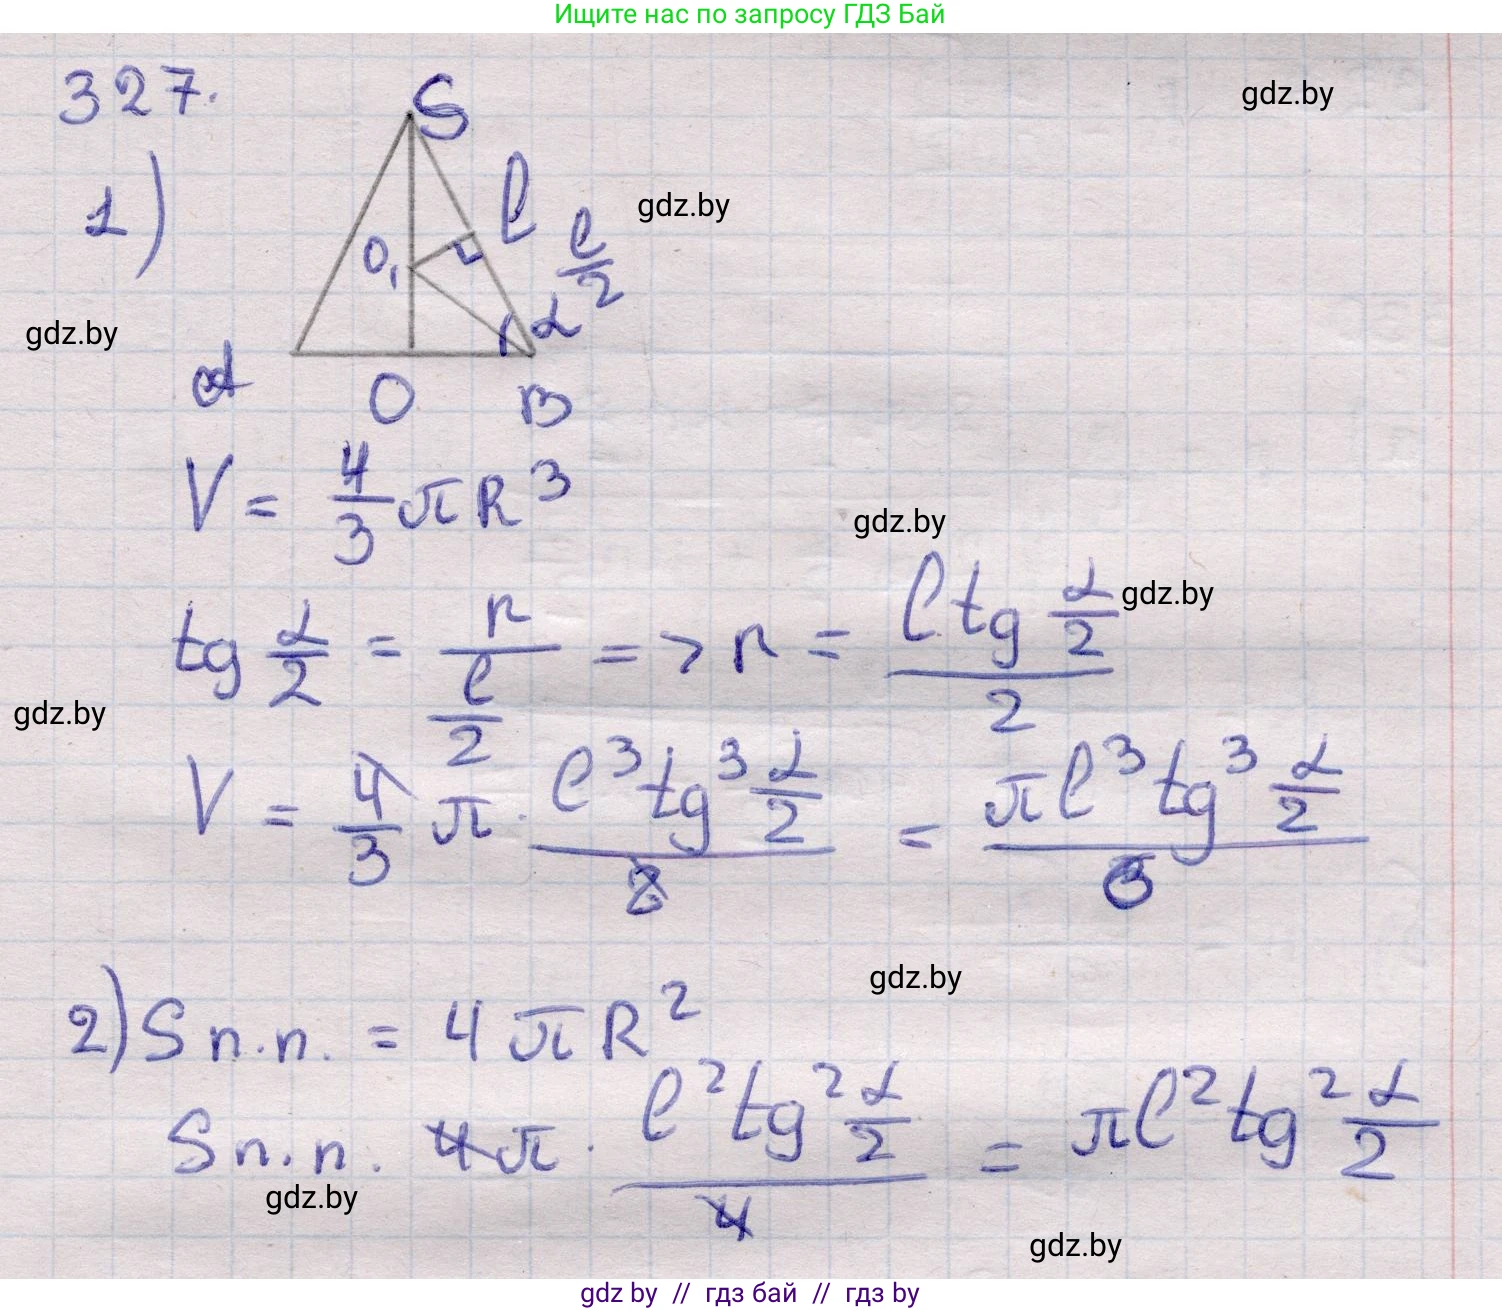 Ищите нас по запросу ГДЗ Бай
327.
gdz.by
1)
S
l
gdz.by
O₁
l/2
α
gdz.by
A
O
B
V = 4/3 πR³
gdz.by
tg α/2 = r/(l/2) => r = (l tg α/2)/2
gdz.by
gdz.by
V = 4/3 π · (l³tg³ α/2)/8 = (πl³tg³ α/2)/6
gdz.by
2) Sп.п. = 4πR²
Sп.п. 4π · (l²tg² α/2)/4 = πl²tg² α/2
gdz.by
gdz.by
gdz by // гдз бай // гдз by